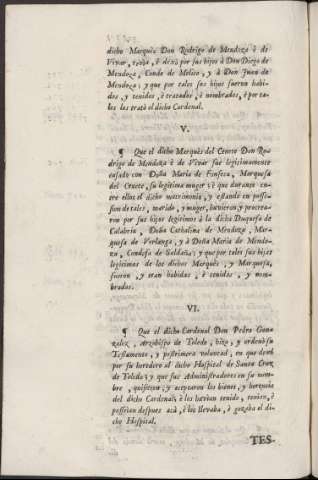 dicho Marquès Don Rodrigo de Mendoza è de
Vivar, tuvo, è dexò por sus hijos à Don Diego de
Mendoza, Conde de Melito, y à Don Juan de
Mendoza; y que por tales sus hijos fueron habi-
dos, y tenidos, è tratados, è nombrados, è por ta-
les los tratò el dicho Cardenal.
V.
¶ Que el dicho Marquès del Cenete Don Ro-
drigo de Mendoza è de Vivar fue legitimamente
casado con Doña Maria de Fonseca, Marquesa
del Cenete, su legitima muger; è que durante en-
tre ellos el dicho matrimonio, y estando en posse-
sion de tales, marido, y muger, huvieron, y procrea-
ron por sus hijas legitimas à la dicha Duquesa de
Calabria, Doña Cathalina de Mendoza, Mar-
quesa de Verlanga, y à Doña Maria de Mendo-
za, Condesa de Saldaña; y que por tales sus hijas
legitimas de los dichos Marquès, y Marquesa,
fueron, y eran habidas, è tenidas, y nom-
bradas.
VI.
¶ Que el dicho Cardenal Don Pedro Gon-
zalez, Arzobispo de Toledo, hizo, y ordenò su
Testamento, y postrimera voluntad, en que dexò
por su heredero al dicho Hospital de Santa Cruz
de Toledo; y que sus Administradores en su nom-
bre, quisieron, y aceptaron los bienes, y herencia
del dicho Cardenal, è los havian tenido, tenian, è
possèian despues acà, è los llevaba, è gozaba el di-
cho Hospital.
TES-